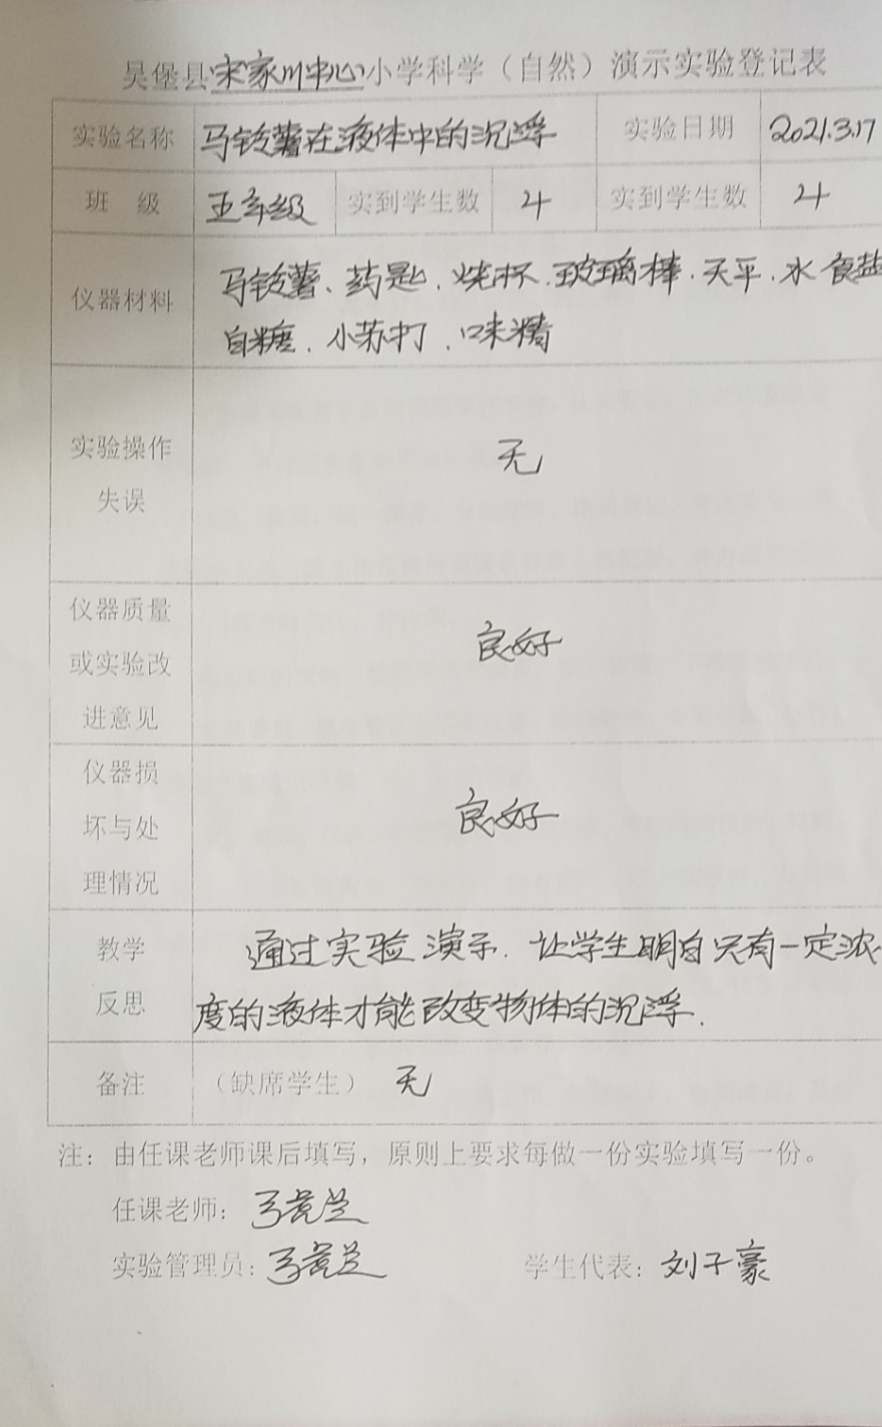 吴堡县宋家川中心小学科学（自然）演示实验登记表
实验名称 马铃薯在液体中的沉浮 实验日期 2021.3.17
班 级 五年级 实到学生数 4 实到学生数 4
仪器材料 马铃薯、药匙、烧杯、玻璃棒、天平、水 食盐
白糖、小苏打、味精
实验操作
失误
无
仪器质量
或实验改
进意见
良好
仪器损
坏与处
理情况
良好
教学
反思
通过实验演示，让学生明白只有一定浓
度的液体才能改变物体的沉浮.
备注 （缺席学生） 无
注：由任课老师课后填写，原则上要求每做一份实验填写一份。
任课老师：
实验管理员： 学生代表：刘子豪